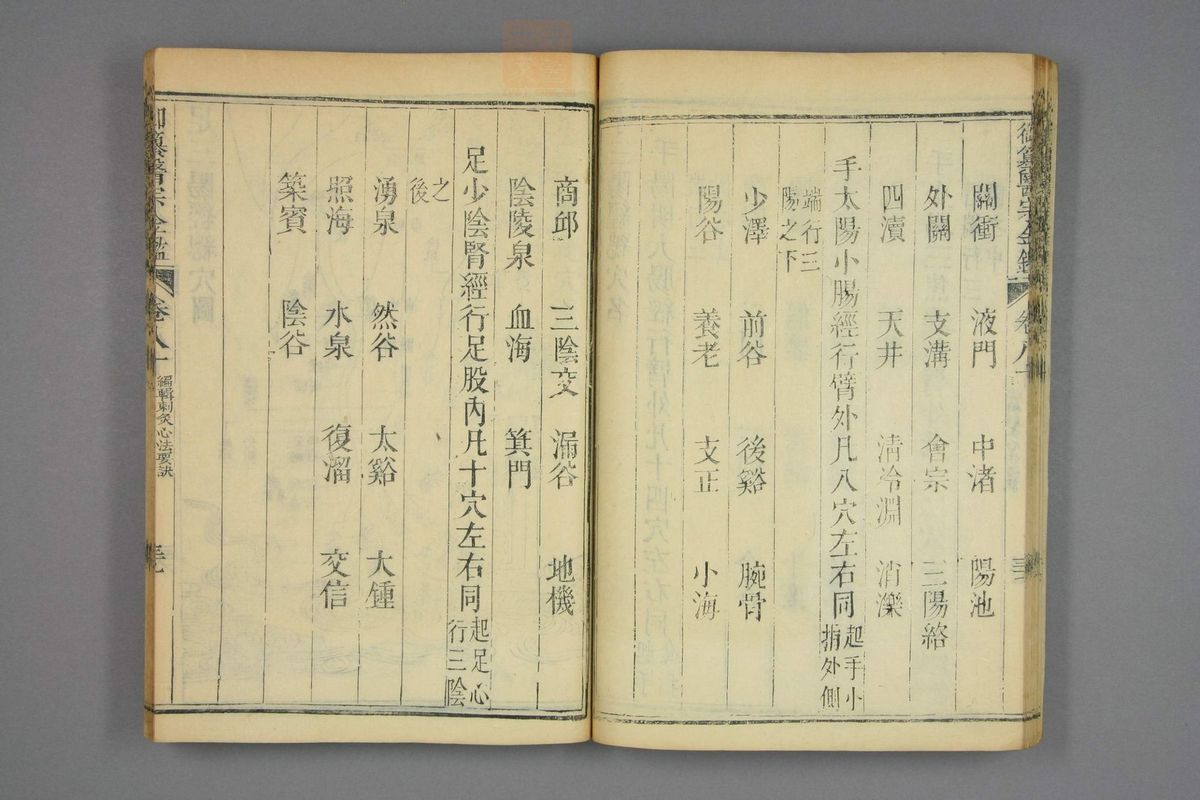 御纂醫宗金鑑 卷八十
關衝 液門 中渚 陽池
外關 支溝 會宗 三陽絡
四瀆 天井 淸冷淵 消濼
手太陽小腸經行臂外凡八穴左右同 起手小指外側
端行三陽之下
少澤 前谷 後谿 腕骨
陽谷 養老 支正 小海
商邱 三陰交 漏谷 地機
陰陵泉 血海 箕門
足少陰腎經行足股內凡十穴左右同 起足心行三陰
之後
湧泉 然谷 太谿 大鍾
照海 水泉 復溜 交信
築賓 陰谷
御纂醫宗金鑑 卷八十 編輯刺灸心法要訣